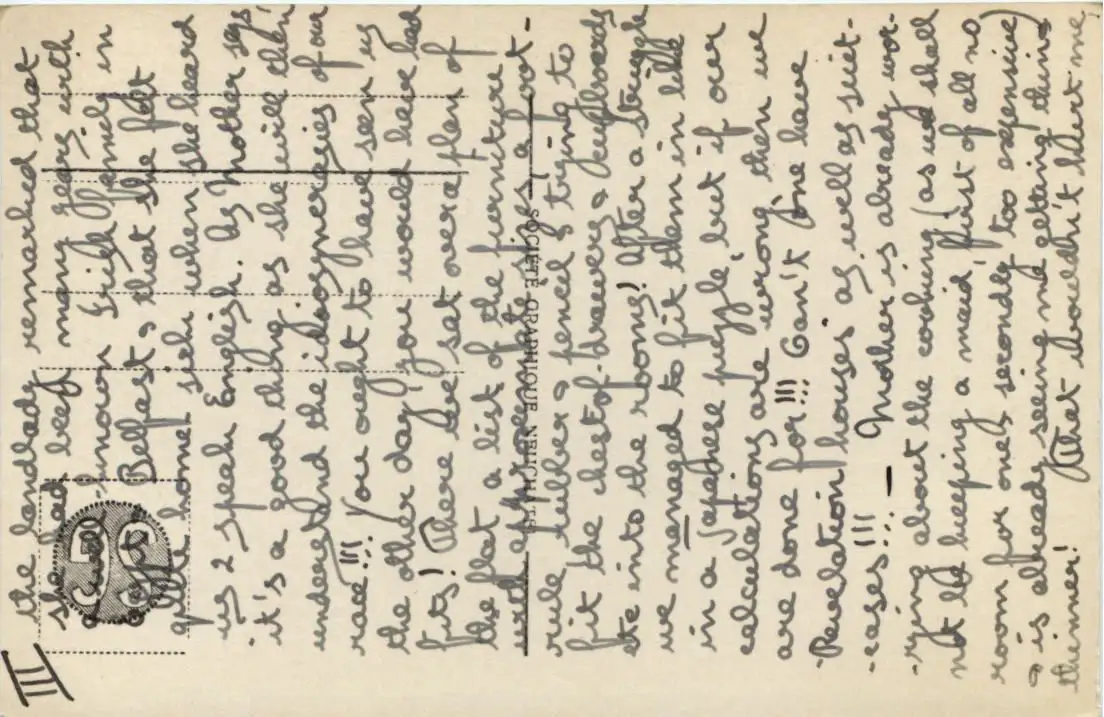 III
the landlady remarked that
she had been many years with
a well-known Irish family in
Belfast, & that she felt
quite home-sick when she heard
us 2 speak English. As Mother says
it's a good thing as she will then
understand the idiosyncracies of our
race!!! You ought to have seen us
the other day; you would have had
fits! There we sat over a plan of
the flat & a list of the furniture
with approximate sizes, a foot-
SOCIÉTÉ GRAPHIQUE NEUCHATEL
rule, rubber & pencil & trying to
fit the chest of drawers, cupboards
etc into the rooms! After a struggle
we managed to fit them in like
in a Japanese puzzle, but if our
calculations are wrong then we
are done for!!! Can't one have
"Revelation" houses as well as suit-
-cases!!! — Mother is already wor-
-rying about the cooking (as we shall
not be keeping a maid, first of all no
room for one & secondly too expensive)
& is already seeing me getting thin &
thinner! (That wouldn't hurt me